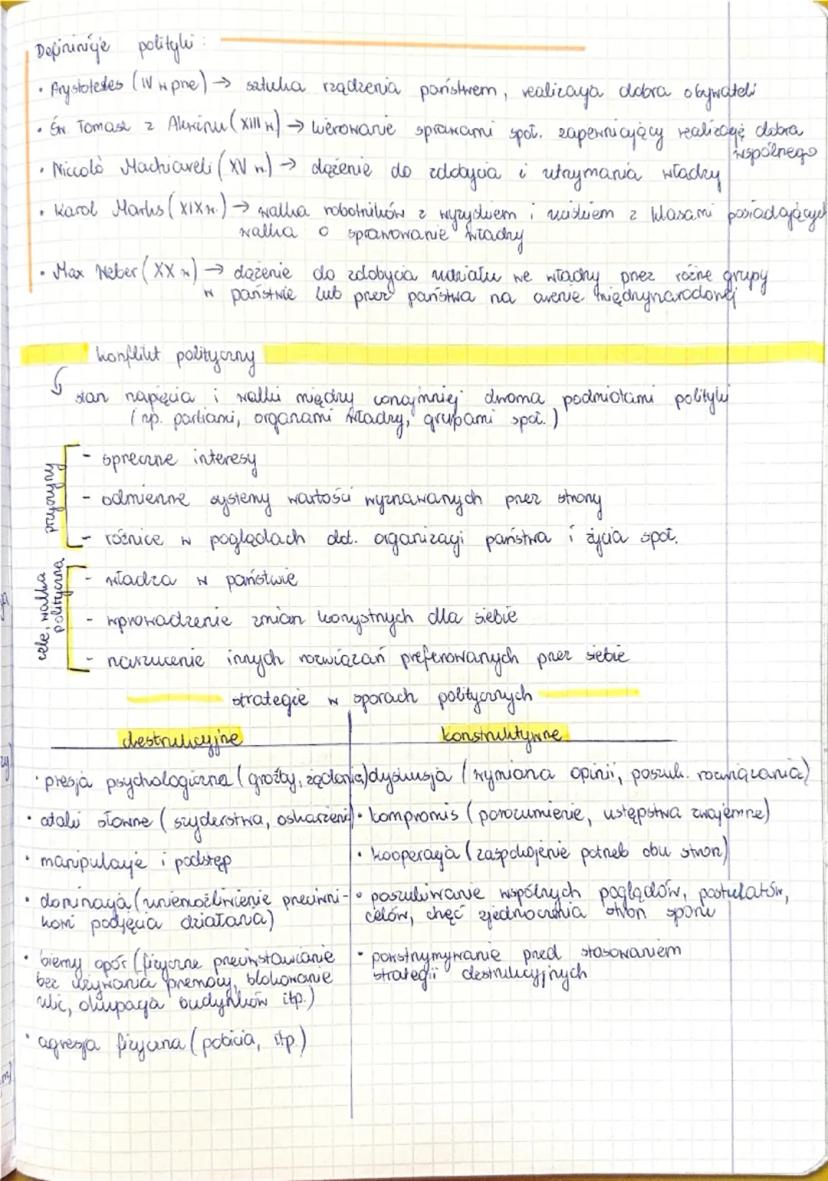 Definicje polityki:
• Arystoteles (IV w pne) → sztuka rządzenia państwem, realizacja dobra obywateli
• Św. Tomasz z Akwinu (XIII w) → kierowanie sprawami społ. zapewniający realizację dobra
wspólnego
• Niccolò Machiaveli (XV w.) → dążenie do zdobycia i utrzymania władzy
• Karol Marks (XIX w.) → walka robotników z wyzyskiem i uciskiem z klasami posiadających
walka o sprawowanie władzy
• Max Weber (XX w) → dążenie do zdobycia udziału we władzy przez różne grupy
w państwie lub przez państwa na arenie międzynarodowej
konflikt polityczny
stan napięcia i walki między conajmniej dwoma podmiotami polityki
(np. partiami, organami władzy, grupami społ.)
przyczyny
- sprzeczne interesy
- odmienne systemy wartości wyznawanych przez strony
- różnice w poglądach dot. organizacji państwa i życia społ.
cele, walka
polityczna
- władza w państwie
- wprowadzenie zmian korzystnych dla siebie
- narzucenie innych rozwiązań preferowanych przez siebie
strategie w sporach politycznych
destrukcyjne
• presja psychologiczna (groźby, żądania)
• ataki słowne (szyderstwa, oskarżenia)
• manipulacje i podstęp
• dominacja (uniemożliwienie przeciwni-
kowi podjęcia działana)
• bierny opór (fizyczne przeciwstawianie
bez używania przemocy, blokowanie
ulic, okupacja budynków itp.)
• agresja fizyczna (pobicia, itp)
konstruktywne
dyskusja (wymiana opinii, poszuk. rozwiązania)
• kompromis (porozumienie, ustępstwa zwajemne)
• kooperacja (zaspokojenie potrzeb obu stron)
• poszukiwanie wspólnych poglądów, postulatów,
celów, chęć zjednoczenia stron sporu
• powstrzymywanie przed stosowaniem
strategii destrukcyjnych